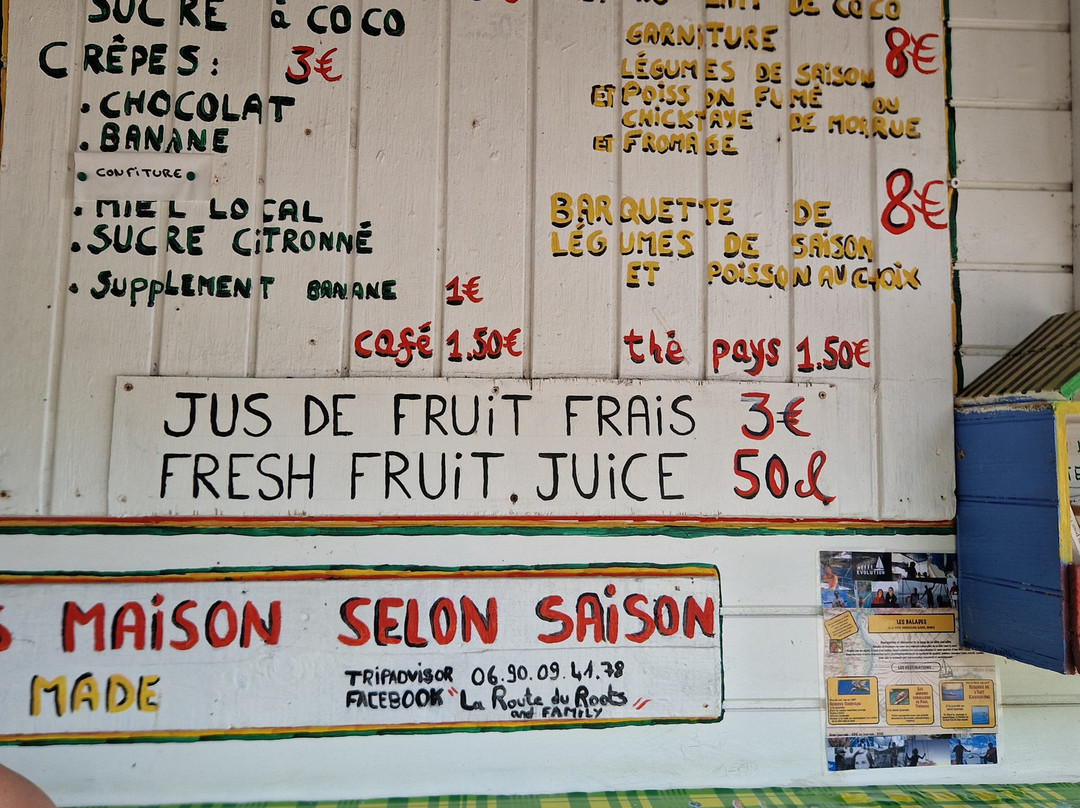 SUCRE à COCO
CRÊPES: 3€
• CHOCOLAT
• BANANE
• CONFITURE •
• MIEL LOCAL
• SUCRE CiTRONNÉ
• SUPPLEMENT BANANE 1€
DE COCO
GARNiTURE 8€
LÉGUMES DE SAiSON
ET POiSSON FUMÉ OU
CHICKTAYE DE MORRUE
ET FROMAGE
BARQUETTE DE 8€
LÉGUMES DE SAiSON
ET POiSSON AU CHOiX
café 1.50€
thé pays 1.50€
JUS DE FRUiT FRAiS 3€
FRESH FRUiT JUiCE 50cl
MAiSON SELON SAiSON
MADE
TRiPADViSOR 06.90.09.41.78
FACEBOOK "La Route du Roots"
and FAMiLY
EVOLUTION
LES BALADES
LES DESTINATIONS